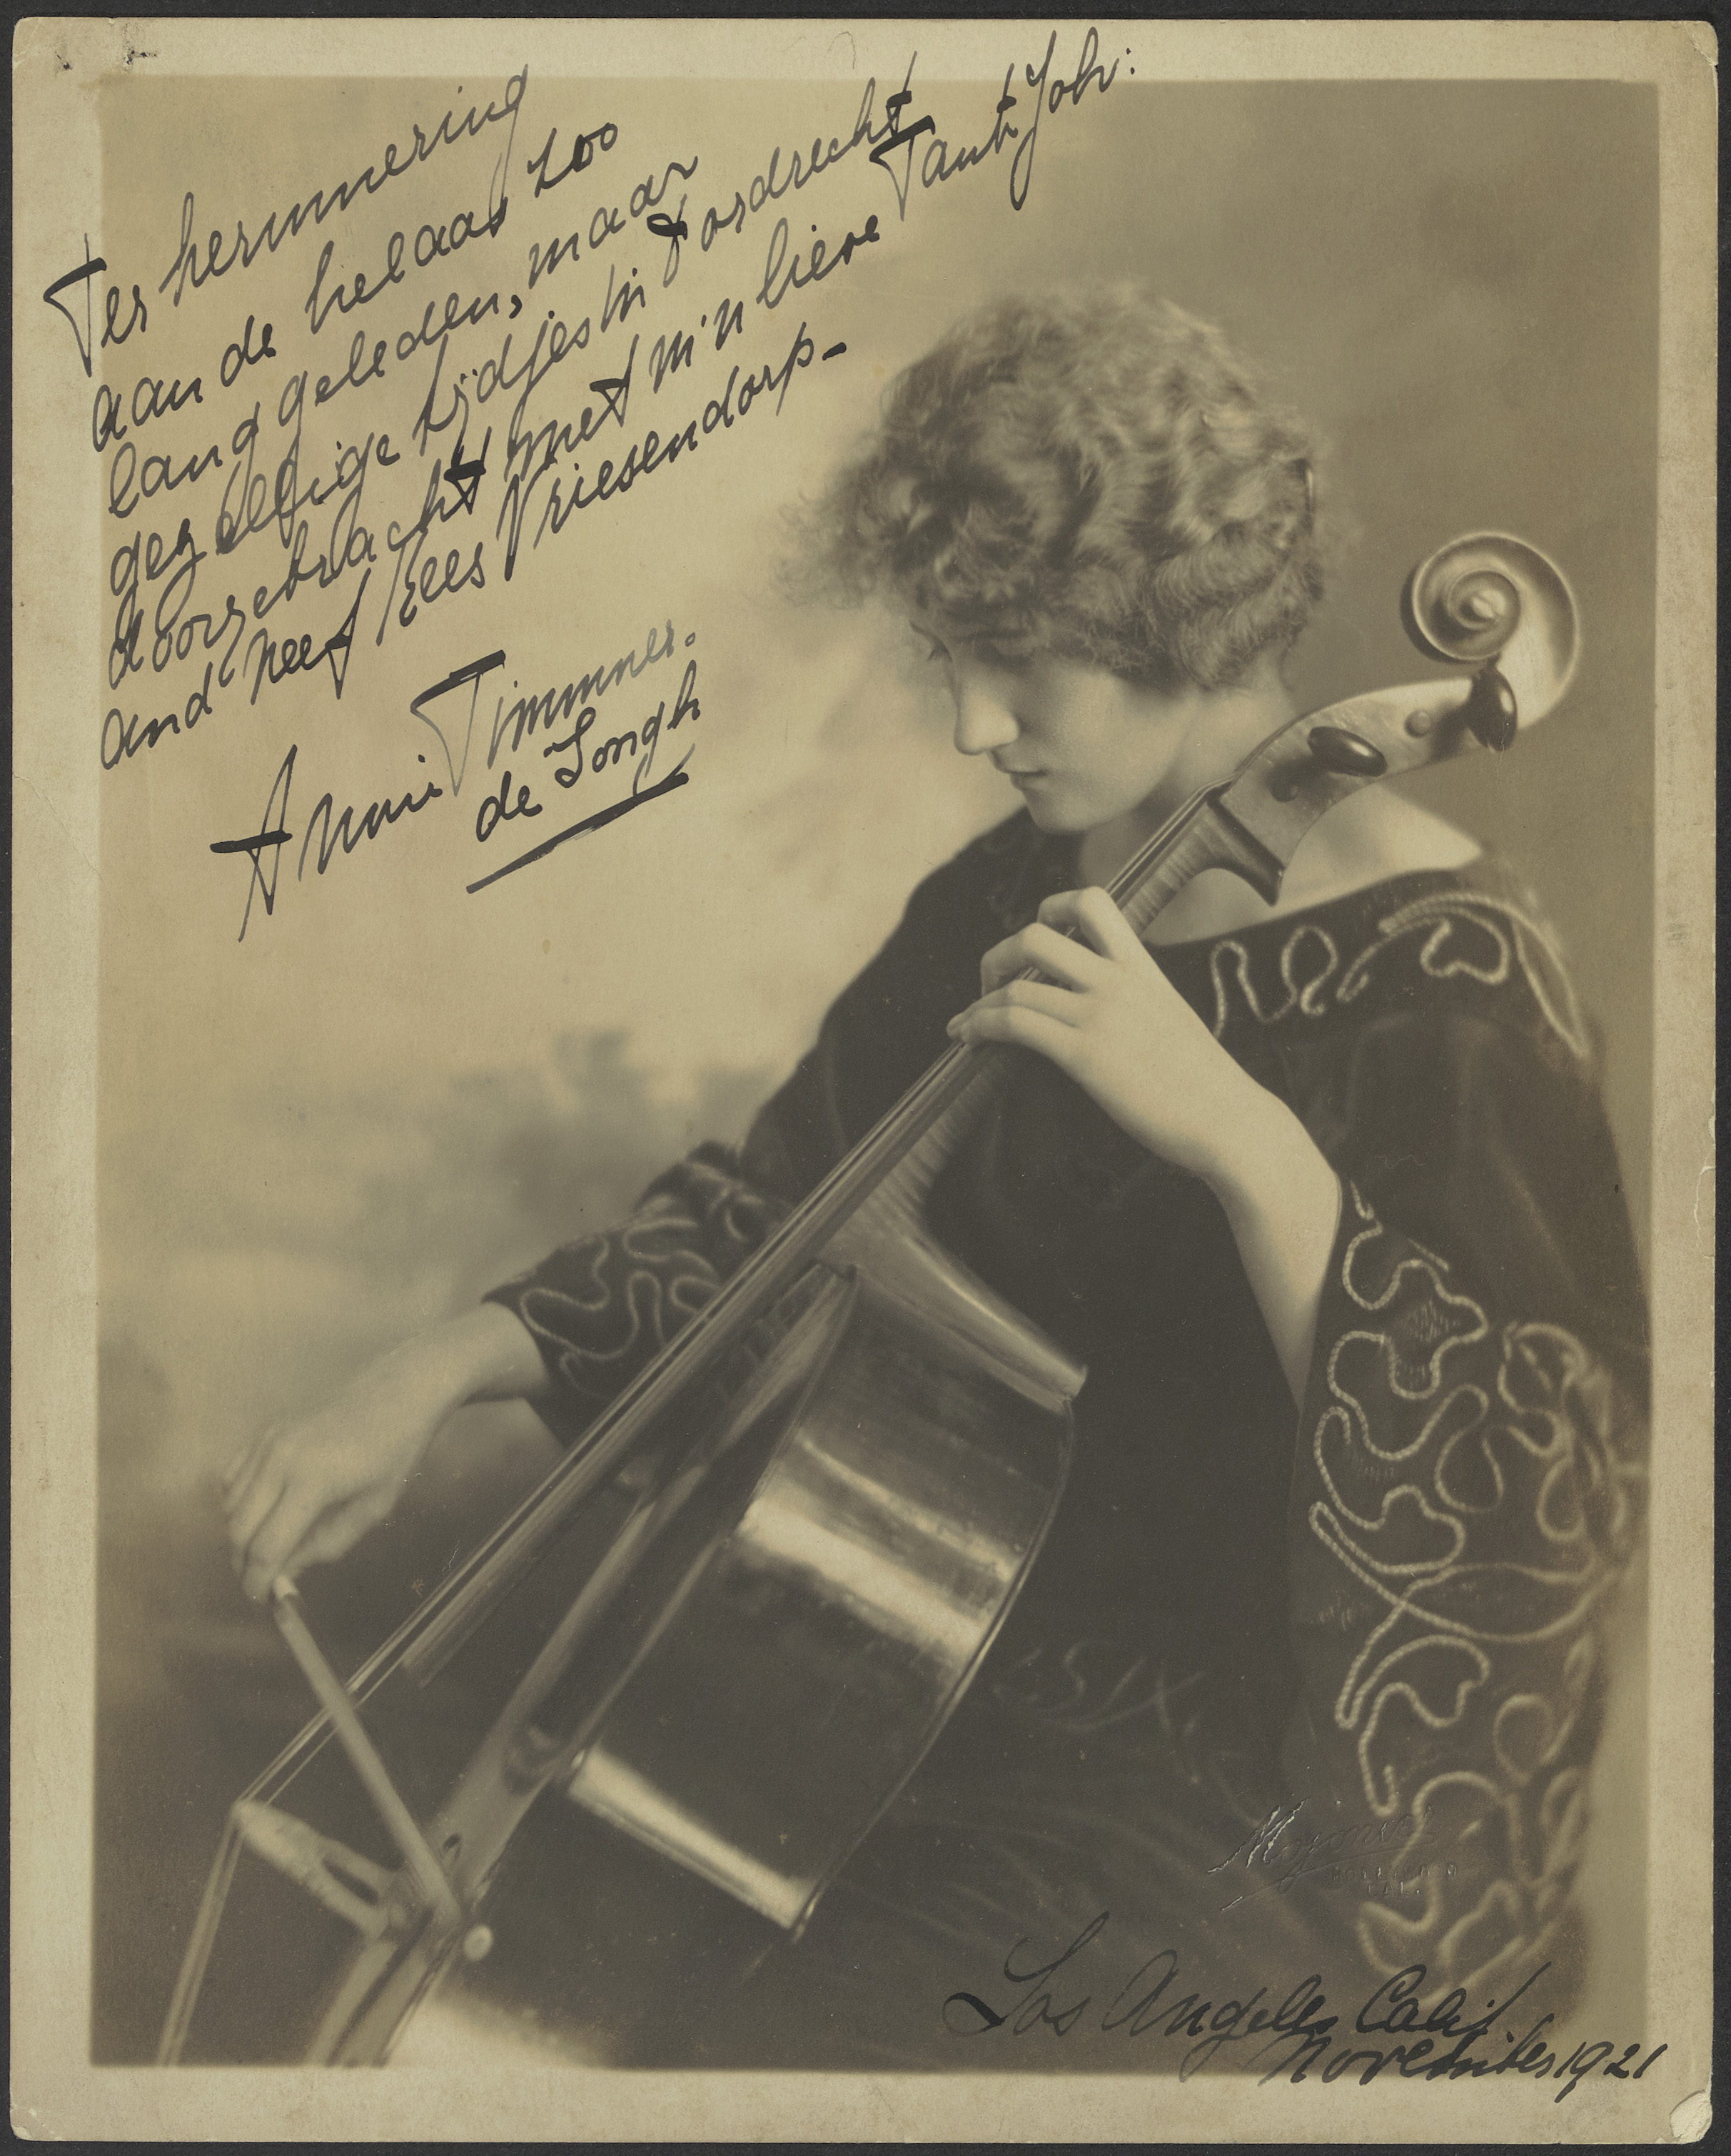 Ter herinnering
aan de helaas zoo
lang geleden, maar
gezellige tijdjes in Dordrecht
doorgebracht met m'n lieve Tante Joh:
and neef Kees Vriesendorp-
Annie Timmner.
de Jongh
HOLLYWOOD
CAL.
Los Angeles Calif
November 1921